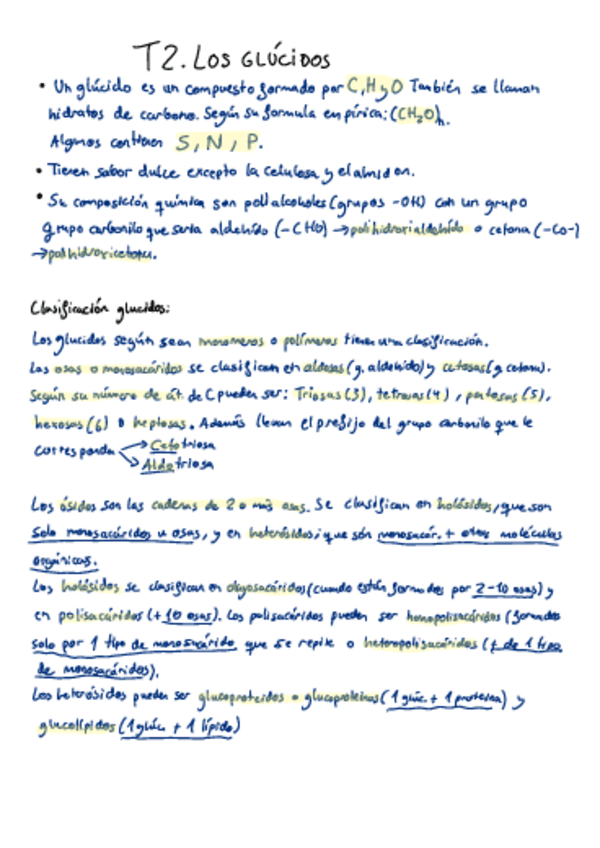 T2. LOS GLÚCIDOS
• Un glúcido es un compuesto formado por C, H y O También se llaman
hidratos de carbono. Según su formula empírica: (CH2O)n.
Algunos contienen S, N, P.
• Tienen sabor dulce excepto la celulosa y el almidon.
• Su composición química son polialcoholes (grupos -OH) con un grupo
grupo carbonilo que seria aldehído (-CHO) → polihidroxialdehído o cetona (-CO-)
→ polihidroxicetona.
Clasificación glucidos:
Los glucidos según sean monomeros o polímeros tienen una clasificación.
Las osas o monosacáridos se clasifican en aldosas (g. aldehído) y cetosas (g. cetona).
Según su número de át. de C pueden ser: Triosas (3), tetrosas (4), pentosas (5),
hexosas (6) o heptosas. Además llevan el prefijo del grupo carbonilo que le
corresponda → Cetotriosa
→ Aldotriosa
Los ósidos son las cadenas de 2 o más osas. Se clasifican en holósidos, que son
solo monosacáridos u osas, y en heterósidos, que són monosacár. + otras moléculas
orgánicas.
Los holósidos se clasifican en oligosacáridos (cuando están formados por 2-10 osas) y
en polisacáridos (+ 10 osas). Los polisacáridos pueden ser homopolisacáridos (formados
solo por 1 tipo de monosacárido que se repite o heteropolisacáridos (+ de 1 tipo
de monosacáridos).
Los heterósidos pueden ser glucoproteidos o glucoproteinas (1 glúc. + 1 proteina) y
glucolípidos (1 glúc. + 1 lípido)